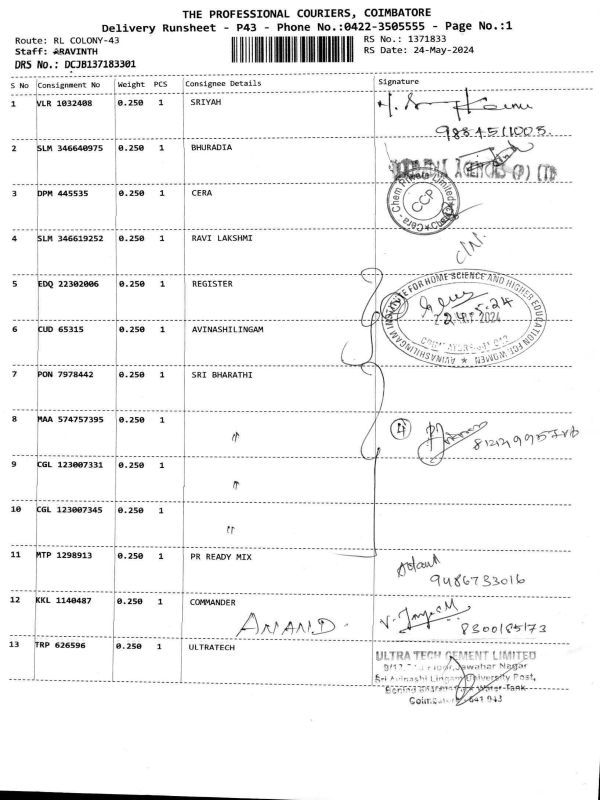 THE PROFESSIONAL COURIERS, COIMBATORE
Delivery Runsheet - P43 - Phone No.:0422-3505555 - Page No.:1
Route: RL COLONY-43 RS No.: 1371833
Staff: ARAVINTH RS Date: 24-May-2024
DRS No.: DCJB137183301
S No Consignment No Weight PCS Consignee Details Signature
1 VLR 1032408 0.250 1 SRIYAH
9884511005
2 SLM 346640975 0.250 1 BHURADIA
(P) LTD
3 DPM 445535 0.250 1 CERA
Cera-Chem Private Limited
CCP
4 SLM 346619252 0.250 1 RAVI LAKSHMI
5 EDQ 22302006 0.250 1 REGISTER
AVINASHILINGAM INSTITUTE FOR HOME SCIENCE AND HIGHER EDUCATION FOR WOMEN
6 CUD 65315 0.250 1 AVINASHILINGAM
7 PON 7978442 0.250 1 SRI BHARATHI
8 MAA 574757395 0.250 1 〃 4
9 CGL 123007331 0.250 1 〃
10 CGL 123007345 0.250 1 〃
11 MTP 1298913 0.250 1 PR READY MIX
9486733016
12 KKL 1140487 0.250 1 COMMANDER
ANAND. 8300185173
13 TRP 626596 0.250 1 ULTRATECH
ULTRA TECH CEMENT LIMITED
Jawahar Nagar
Sri Avinashi Lingam University Post,
Behind Water Tank
Coimbatore - 641 043